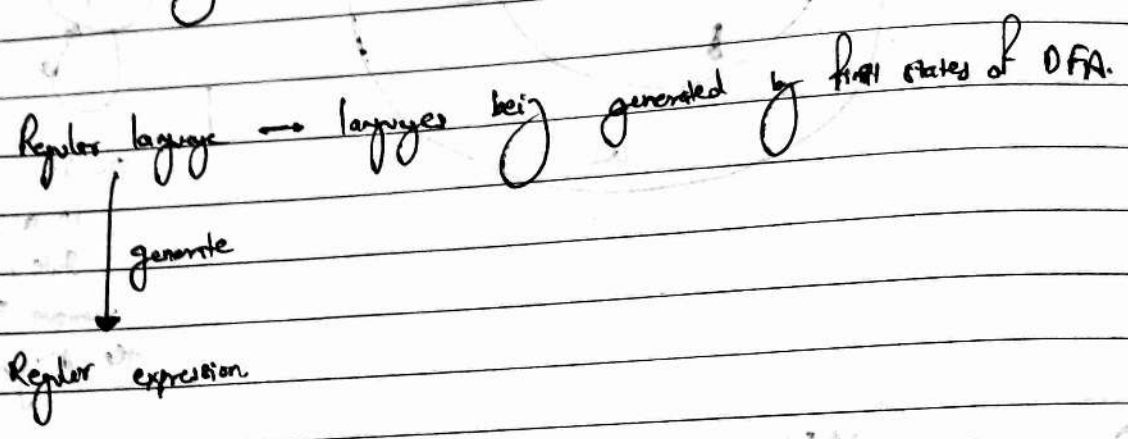 Regular language → languages being generated by final states of DFA.
generate
Regular expression